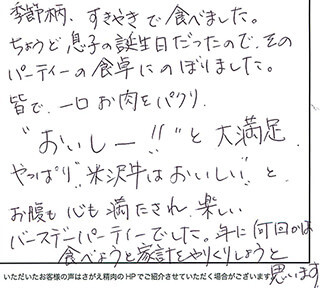 季節柄、すきやきで食べました。
ちょうど息子の誕生日だったので、その
パーティーの食卓にのぼりました。
皆で、一口お肉をパクリ、
"おいしー!!"と大満足
やっぱり"米沢牛はおいしい"と
お腹も心も満たされ、楽しい
バースデーパーティーでした。年に何回かは
食べようと家計をやりくりしようと
思います
いただいたお客様の声はさがえ精肉のHPでご紹介させていただく場合がございます。